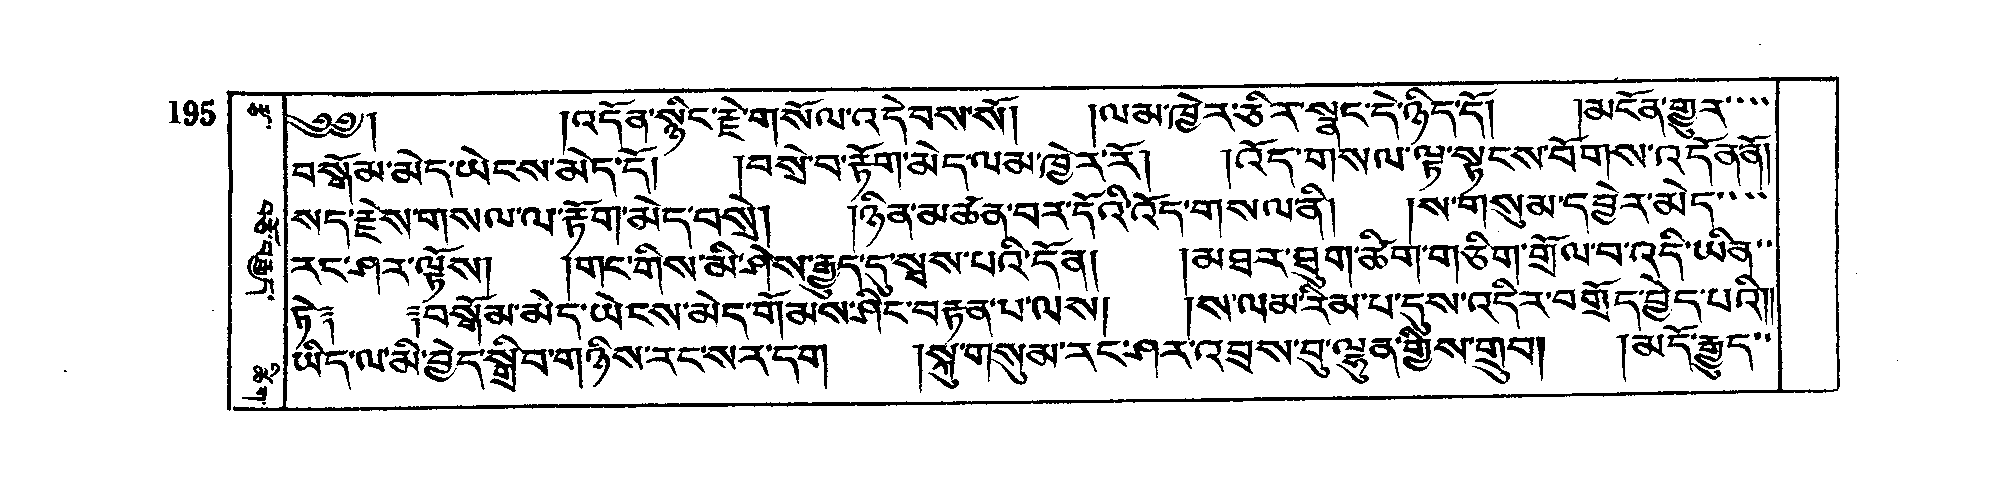 195
༄༅། །འདོན་སྙིང་རྗེ་གསོལ་འདེབས་སོ། །ལམ་ཁྱེར་ཅིར་སྣང་དེ་ཉིད་དོ། །མངོན་གྱུར་
བསྒོམ་མེད་ཡེངས་མེད་དོ། །བསྲེ་བ་རྟོག་མེད་ལམ་ཁྱེར་རོ། །འོད་གསལ་ལྟ་སྟངས་བོགས་འདོནནོ།
སད་རྗེས་གསལ་ལ་རྟོག་མེད་བསྲེ། །ཉིན་མཚན་བར་དོའི་འོད་གསལ་ནི། །ས་གསུམ་དབྱེར་མེད་
རང་ཤར་ལྟོས། །གང་གིས་མི་ཤེས་རྒྱུད་དུ་སྦས་པའི་དོན། །མཐར་ཐུག་ཚིག་གཅིག་གྲོལ་བ་འདི་ཡིན་
ཏེ༔ ༔བསྒོམ་མེད་ཡེངས་མེད་གོམས་ཤིང་བརྟན་པ་ལས། །ས་ལམ་རིམ་པ་དུས་འདིར་བགྲོད་བྱེད་པའི།།
ཡིད་ལ་མི་བྱེད་སྒྲིབ་གཉིས་རང་སར་དག །སྐུ་གསུམ་རང་ཤར་འབྲས་བུ་ལྷུན་གྱིས་གྲུབ། །མདོ་རྒྱུད་